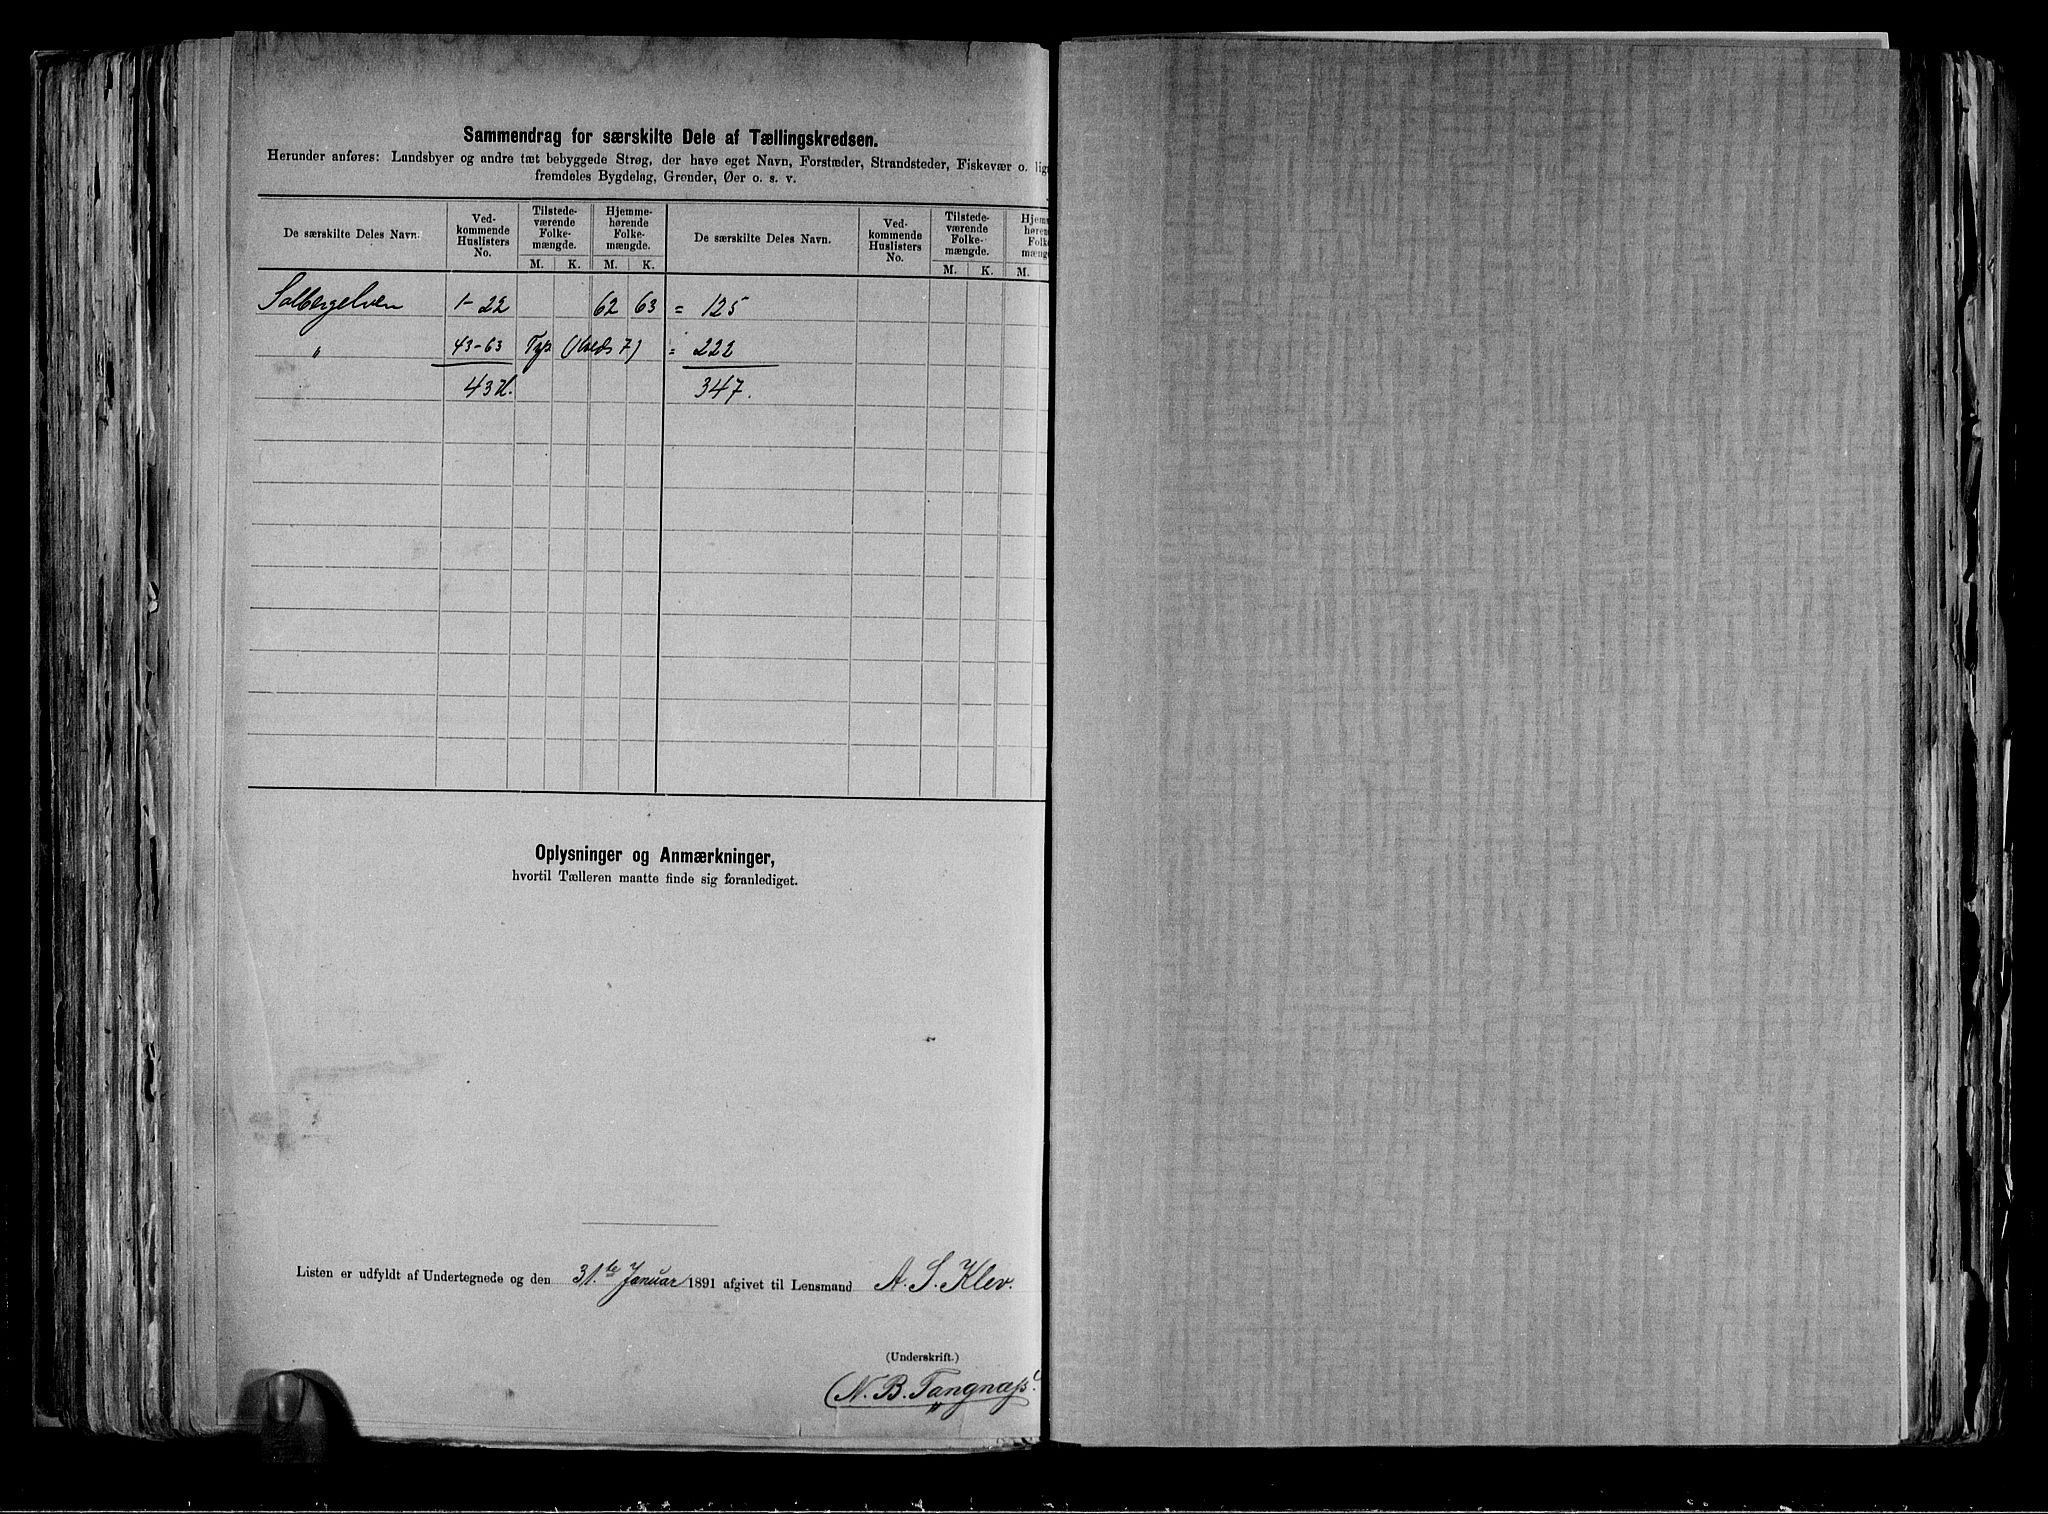 Sammendrag for særskilte Dele af Tællingskredsen.
Herunder anføres: Landsbyer og andre tæt bebyggede Strøg, der have eget Navn, Forstæder, Strandsteder, Fiskevær o. lig
fremdeles Bygdeløg, Grender, Øer o. s. v.
De særskilte Deles Navn. Ved-kommende Huslisters No. Tilstede-værende Folke-mængde. Hjemme-hørende Folke-mængde. De særskilte Deles Navn. Ved-kommende Huslisters No. Tilstede-værende Folke-mængde. Hjemm hørend Folk mængd
M. K. M. K. M. K. M.
Solbergelven 1-22 62 63 = 125
" 43-63 (Kreds 7) = 222
43 H. 347.
Oplysninger og Anmærkninger,
hvortil Tælleren maatte finde sig foranlediget.
Listen er udfyldt af Undertegnede og den 31.te Januar 1891 afgivet til Lensmand A. S. Klev.
(Underskrift.)
N. B. Tangnæss